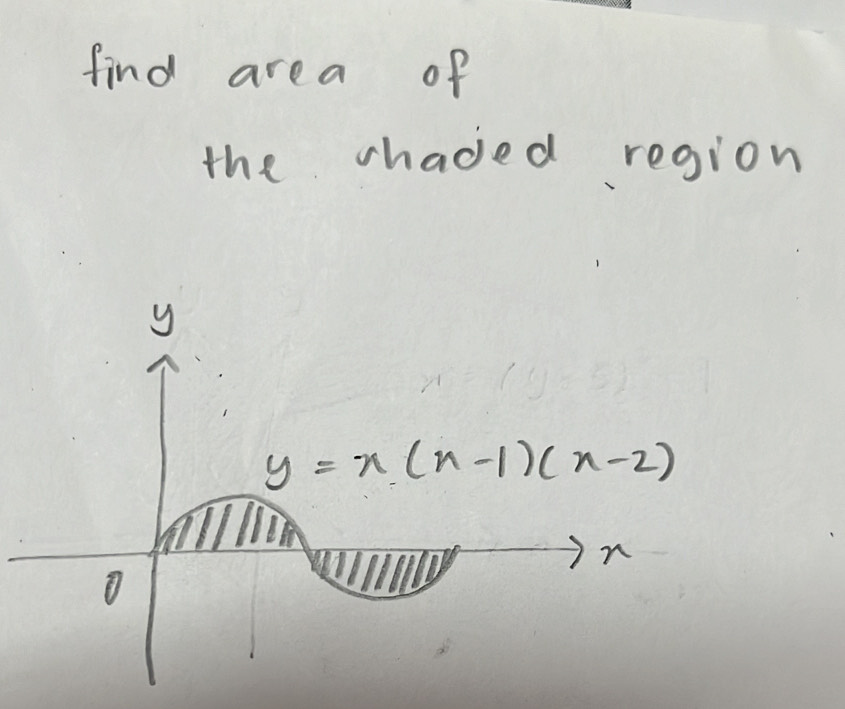 find area of
the shaded region
y
y = x (x-1)(x-2)
x
0